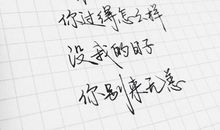 你过得怎么样
没我的日子
你别来无恙